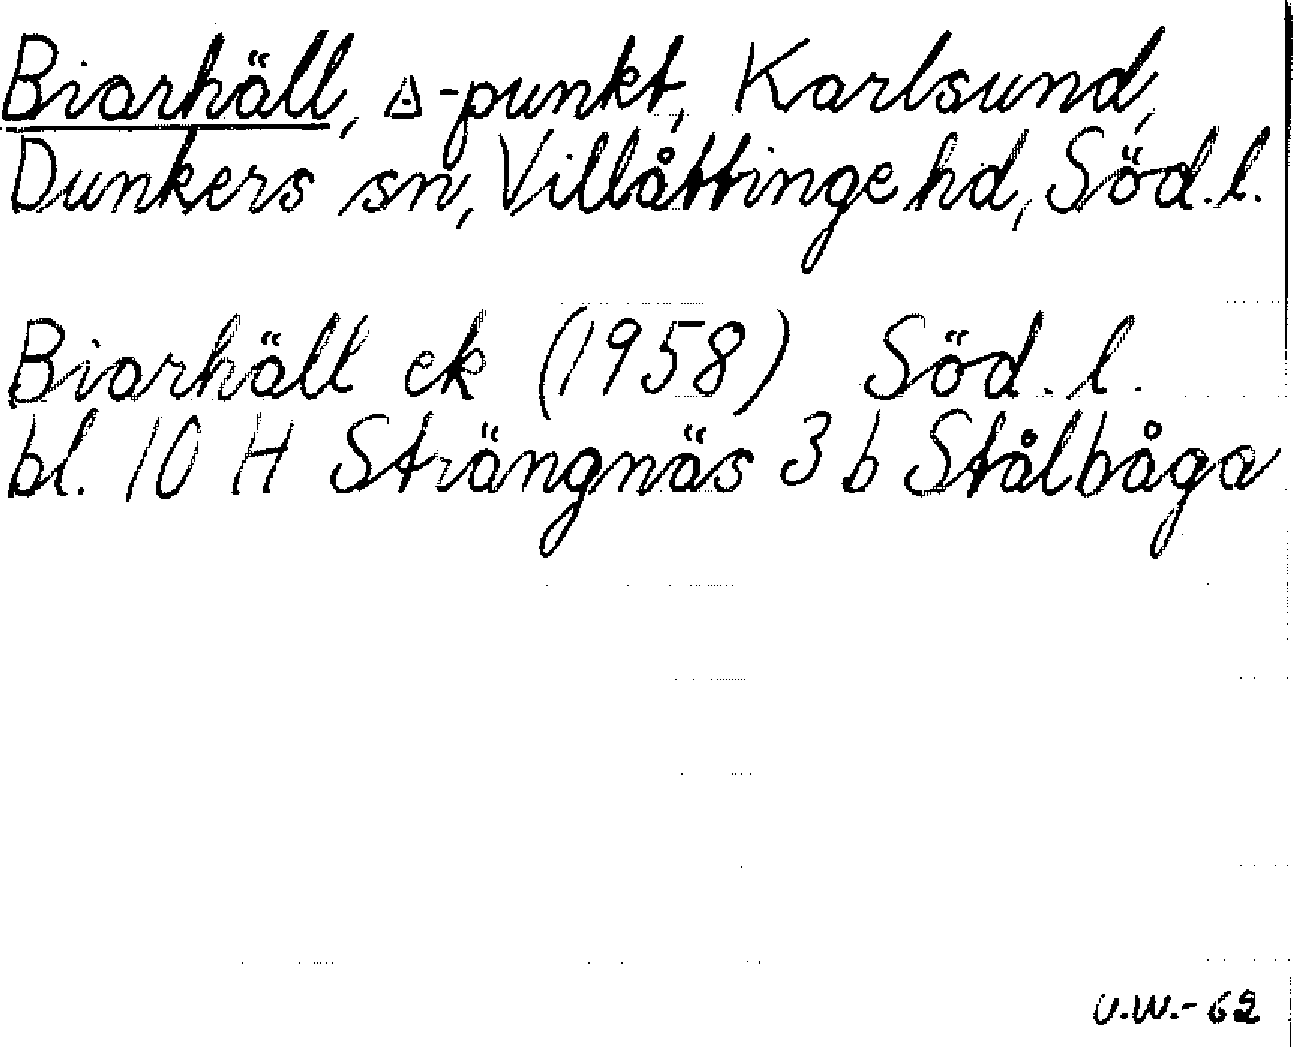 Biarhäll, ◬-punkt, Karlsund,
Dunkers sn, Villåttinge hd, Söd.l.
Biarhäll ek (1958) Söd.l.
bl. 10 H Strängnäs 3 b Stålbåga
U.W.-62